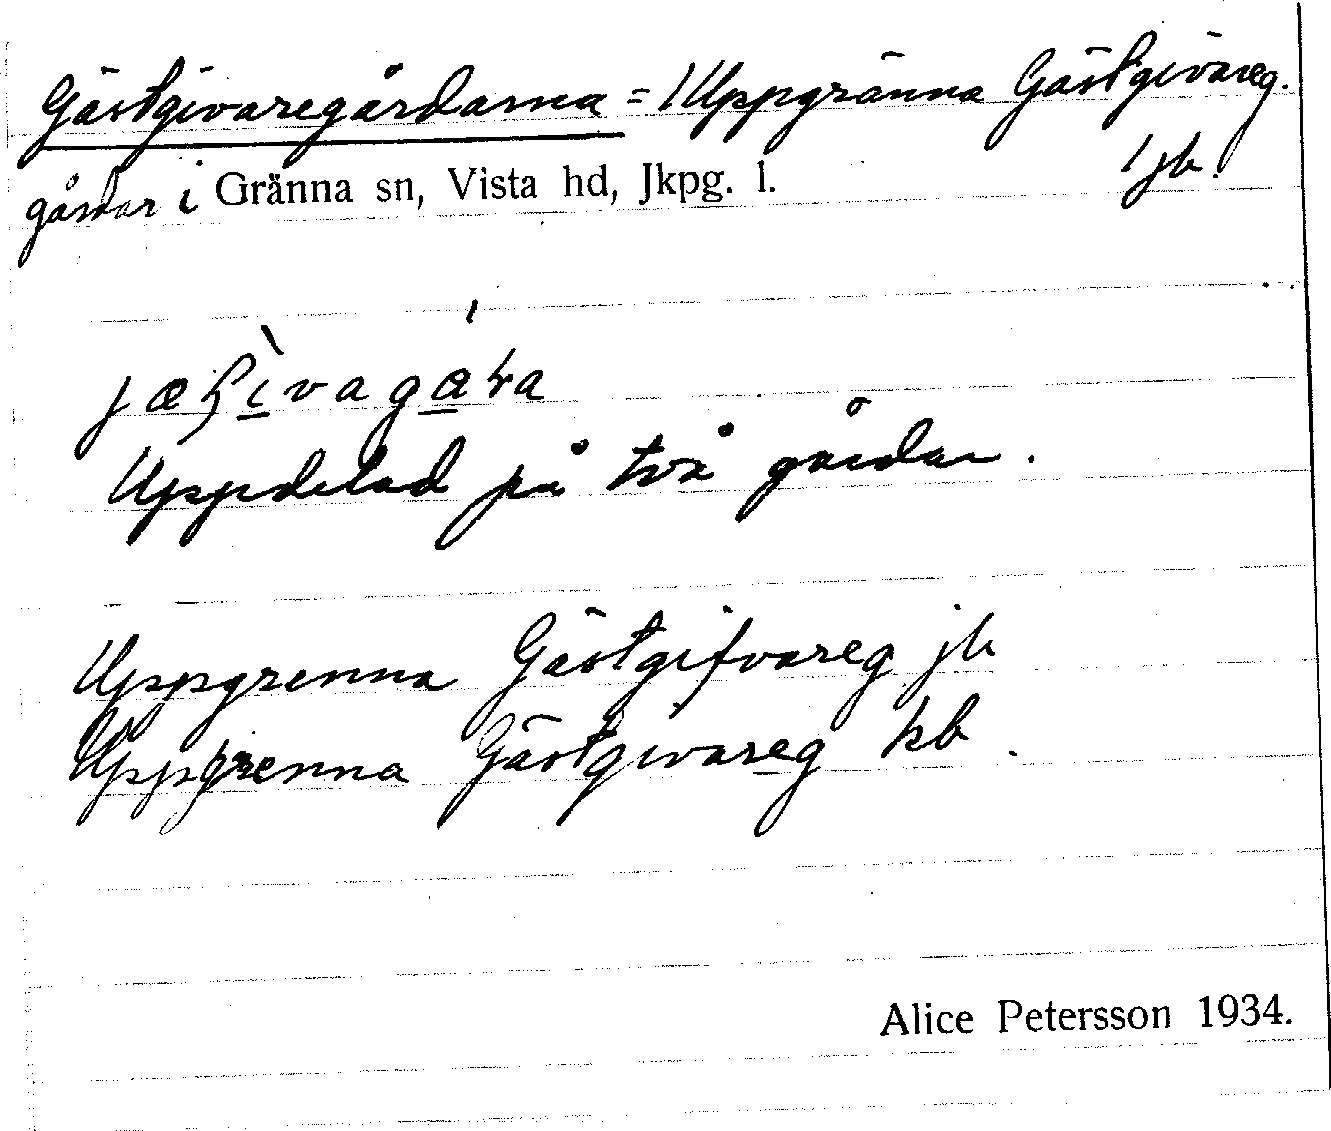 Gästgivaregårdarna = Uppgränna Gästgivareg.
jb.
gårdar i Gränna sn, Vista hd, Jkpg. l.
Uppdelad på två gårdar.
Uppgrenna Gästgifvareg jb
Uppgrenna Gästgivareg kb.
Alice Petersson 1934.